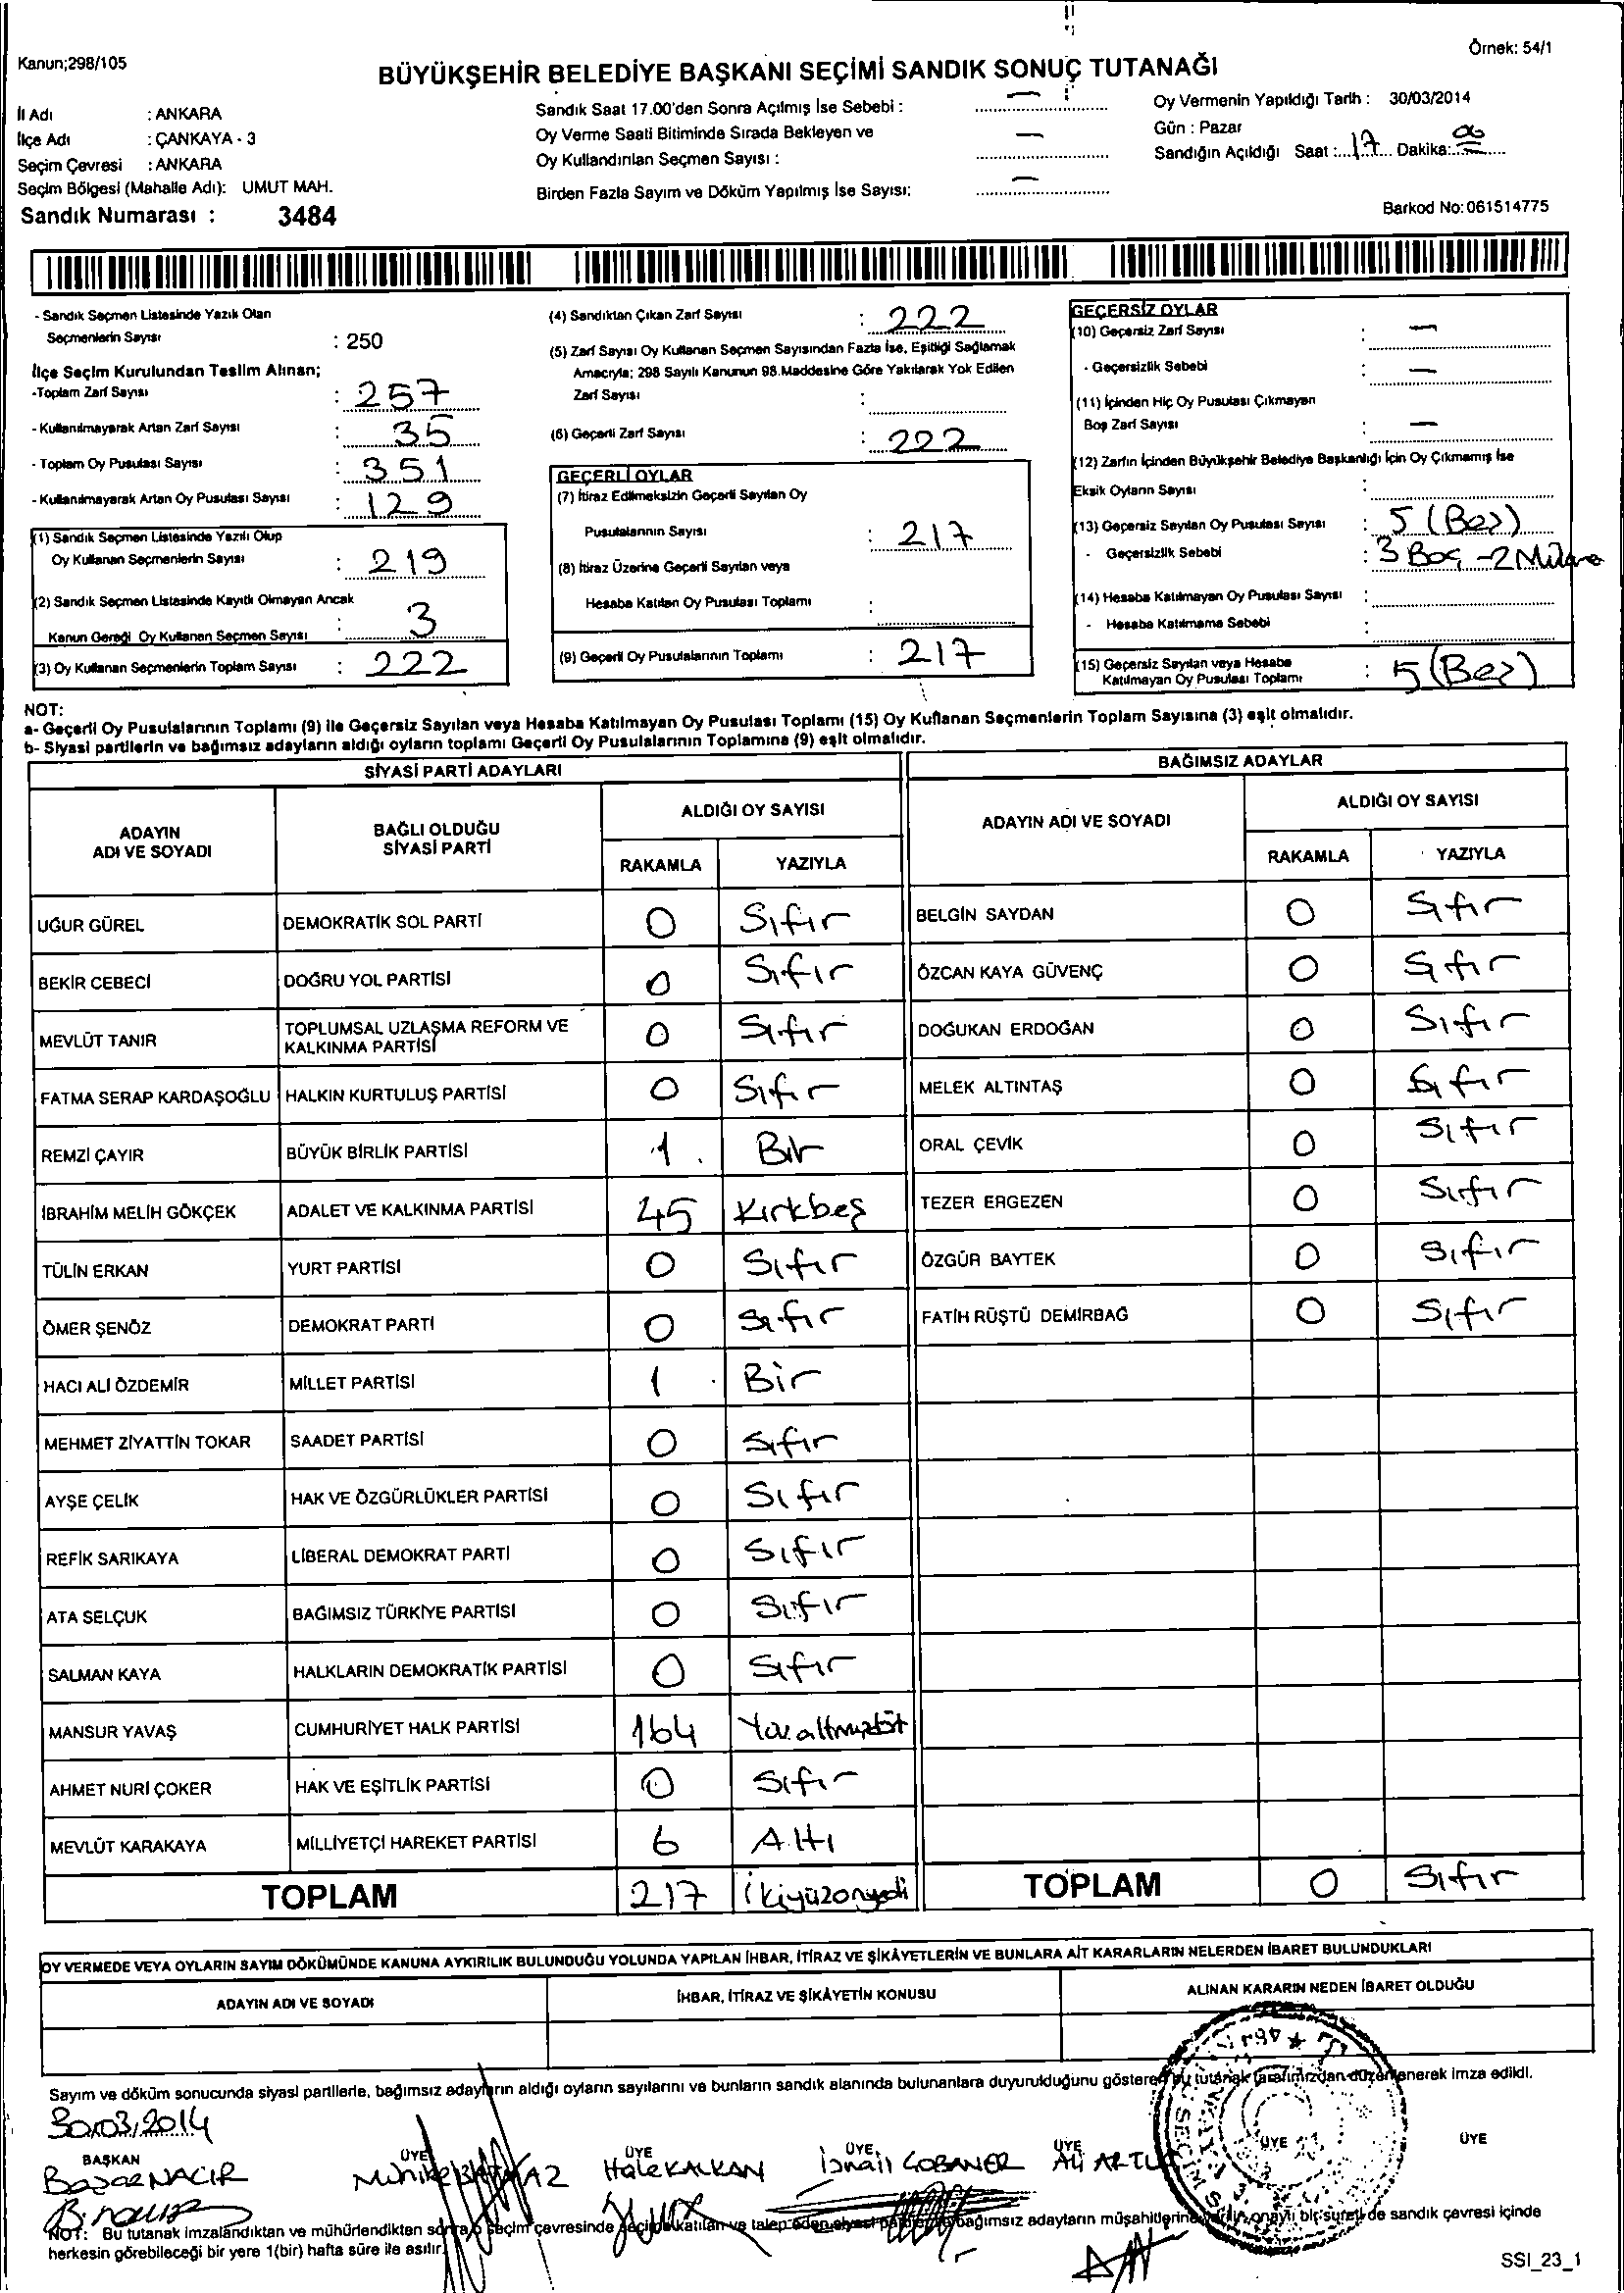 Kanun;298/105
Örnek: 54/1
BÜYÜKŞEHİR BELEDİYE BAŞKANI SEÇİMİ SANDIK SONUÇ TUTANAĞI
İl Adı : ANKARA
İlçe Adı : ÇANKAYA - 3
Seçim Çevresi : ANKARA
Seçim Bölgesi (Mahalle Adı): UMUT MAH.
Sandık Numarası : 3484
Sandık Saat 17.00'den Sonra Açılmış İse Sebebi : —
Oy Verme Saati Bitiminde Sırada Bekleyen ve
Oy Kullandırılan Seçmen Sayısı : —
Birden Fazla Sayım ve Döküm Yapılmış İse Sayısı: —
Oy Vermenin Yapıldığı Tarih : 30/03/2014
Gün : Pazar
Sandığın Açıldığı Saat : 17 Dakika: 00
Barkod No: 061514775
- Sandık Seçmen Listesinde Yazılı Olan
Seçmenlerin Sayısı : 250
İlçe Seçim Kurulundan Teslim Alınan;
-Toplam Zarf Sayısı : 257
- Kullanılmayarak Artan Zarf Sayısı : 35
- Toplam Oy Pusulası Sayısı : 351
- Kullanılmayarak Artan Oy Pusulası Sayısı : 129
(1) Sandık Seçmen Listesinde Yazılı Olup
Oy Kullanan Seçmenlerin Sayısı : 219
(2) Sandık Seçmen Listesinde Kayıtlı Olmayan Ancak
Kanun Gereği Oy Kullanan Seçmen Sayısı : 3
(3) Oy Kullanan Seçmenlerin Toplam Sayısı : 222
(4) Sandıktan Çıkan Zarf Sayısı : 222
(5) Zarf Sayısı Oy Kullanan Seçmen Sayısından Fazla İse, Eşitliği Sağlamak
Amacıyla; 298 Sayılı Kanunun 98.Maddesine Göre Yakılarak Yok Edilen
Zarf Sayısı :
(6) Geçerli Zarf Sayısı : 222
GEÇERLİ OYLAR
(7) İtiraz Edilmeksizin Geçerli Sayılan Oy
Pusulalarının Sayısı : 217
(8) İtiraz Üzerine Geçerli Sayılan veya
Hesaba Katılan Oy Pusulası Toplamı :
(9) Geçerli Oy Pusulalarının Toplamı : 217
GEÇERSİZ OYLAR
(10) Geçersiz Zarf Sayısı : —
- Geçersizlik Sebebi : —
(11) İçinden Hiç Oy Pusulası Çıkmayan
Boş Zarf Sayısı : —
(12) Zarfın İçinden Büyükşehir Belediye Başkanlığı İçin Oy Çıkmamış İse
Eksik Oyların Sayısı :
(13) Geçersiz Sayılan Oy Pusulası Sayısı : 5 (Beş)
- Geçersizlik Sebebi : 3 Boş -2
(14) Hesaba Katılmayan Oy Pusulası Sayısı :
- Hesaba Katılmama Sebebi :
(15) Geçersiz Sayılan veya Hesaba
Katılmayan Oy Pusulası Toplamı : 5 (Beş)
NOT:
a- Geçerli Oy Pusulalarının Toplamı (9) ile Geçersiz Sayılan veya Hesaba Katılmayan Oy Pusulası Toplamı (15) Oy Kullanan Seçmenlerin Toplam Sayısına (3) eşit olmalıdır.
b- Siyasi partilerin ve bağımsız adayların aldığı oyların toplamı Geçerli Oy Pusulalarının Toplamına (9) eşit olmalıdır.
SİYASİ PARTİ ADAYLARI
BAĞIMSIZ ADAYLAR
ADAYIN ADI VE SOYADI
BAĞLI OLDUĞU SİYASİ PARTİ
ALDIĞI OY SAYISI
RAKAMLA YAZIYLA
ADAYIN ADI VE SOYADI
ALDIĞI OY SAYISI
RAKAMLA YAZIYLA
UĞUR GÜREL DEMOKRATİK SOL PARTİ 0 Sıfır BELGİN SAYDAN 0 Sıfır
BEKİR CEBECİ DOĞRU YOL PARTİSİ 0 Sıfır ÖZCAN KAYA GÜVENÇ 0 Sıfır
MEVLÜT TANIR TOPLUMSAL UZLAŞMA REFORM VE KALKINMA PARTİSİ 0 Sıfır DOĞUKAN ERDOĞAN 0 Sıfır
FATMA SERAP KARDAŞOĞLU HALKIN KURTULUŞ PARTİSİ 0 Sıfır MELEK ALTINTAŞ 0 Sıfır
REMZİ ÇAYIR BÜYÜK BİRLİK PARTİSİ 1 Bir ORAL ÇEVİK 0 Sıfır
İBRAHİM MELİH GÖKÇEK ADALET VE KALKINMA PARTİSİ 45 Kırkbeş TEZER ERGEZEN 0 Sıfır
TÜLİN ERKAN YURT PARTİSİ 0 Sıfır ÖZGÜR BAYTEK 0 Sıfır
ÖMER ŞENÖZ DEMOKRAT PARTİ 0 Sıfır FATİH RÜŞTÜ DEMİRBAĞ 0 Sıfır
HACI ALİ ÖZDEMİR MİLLET PARTİSİ 1 Bir
MEHMET ZİYATTİN TOKAR SAADET PARTİSİ 0 Sıfır
AYŞE ÇELİK HAK VE ÖZGÜRLÜKLER PARTİSİ 0 Sıfır
REFİK SARIKAYA LİBERAL DEMOKRAT PARTİ 0 Sıfır
ATA SELÇUK BAĞIMSIZ TÜRKİYE PARTİSİ 0 Sıfır
SALMAN KAYA HALKLARIN DEMOKRATİK PARTİSİ 0 Sıfır
MANSUR YAVAŞ CUMHURİYET HALK PARTİSİ 164 Yüzaltmışdört
AHMET NURİ ÇOKER HAK VE EŞİTLİK PARTİSİ 0 Sıfır
MEVLÜT KARAKAYA MİLLİYETÇİ HAREKET PARTİSİ 6 Altı
TOPLAM 217 İkiyüzonyedi TOPLAM 0 Sıfır
OY VERMEDE VEYA OYLARIN SAYIM DÖKÜMÜNDE KANUNA AYKIRILIK BULUNDUĞU YOLUNDA YAPILAN İHBAR, İTİRAZ VE ŞİKÂYETLERİN VE BUNLARA AİT KARARLARIN NELERDEN İBARET BULUNDUKLARI
ADAYIN ADI VE SOYADI İHBAR, İTİRAZ VE ŞİKÂYETİN KONUSU ALINAN KARARIN NEDEN İBARET OLDUĞU
Sayım ve döküm sonucunda siyasi partilerle, bağımsız adayların aldığı oyların sayılarını ve bunların sandık alanında bulunanlara duyurulduğunu gösteren bu tutanak tarafımızdan düzenlenerek imza edildi.
30.03.2014
BAŞKAN ÜYE ÜYE ÜYE ÜYE ÜYE ÜYE
Başar NACIR Hale KALKAN İsmail ÇOBANER Ali
NOT: Bu tutanak imzalandıktan ve mühürlendikten sonra seçim çevresinde seçime katılan ve talep eden siyasi bağımsız adayların müşahitlerine onaylı bir sureti de sandık çevresi içinde
herkesin görebileceği bir yere 1(bir) hafta süre ile asılır.
SSI_23_1